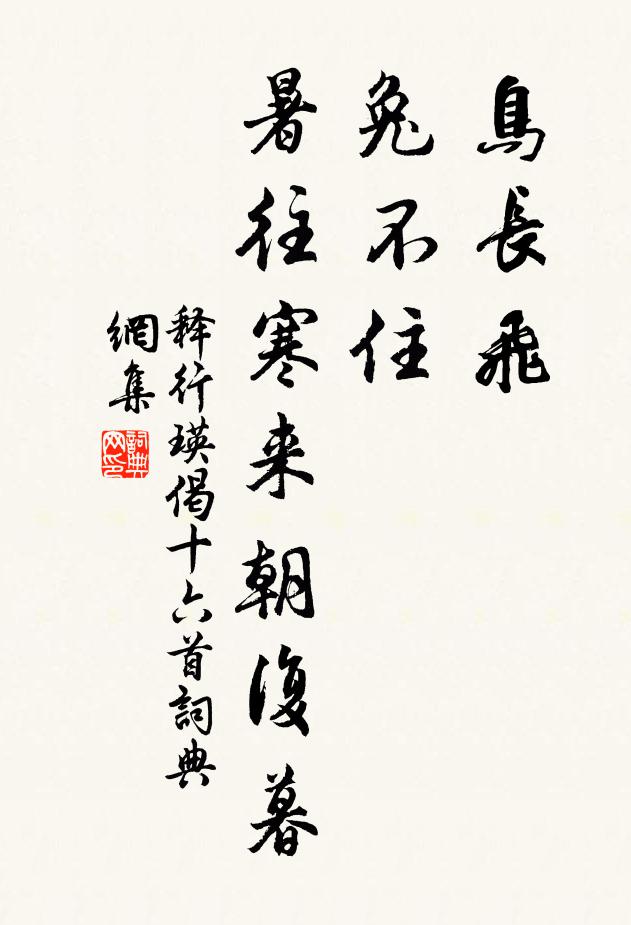 烏長飛
兔不住
暑往寒来朝復暮
释行瑛偈十六首詞典
網集
詞典
网印